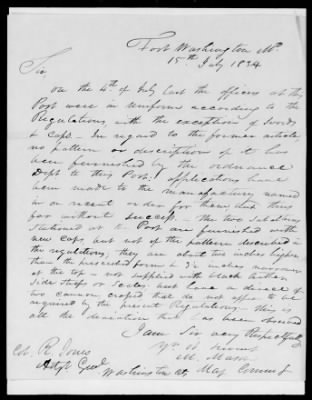 Fort Washington Md.
15th July 1834
Sir,
On the 4th of July last the officers at this
Post were in Uniform according to the
Regulations, with the exceptions of Swords
& caps – In regard to the former article,
no pattern or description of it has
been furnished by the ordnance
Dept to this Post; applications have
been made to the manufacturer named
in a recent order for them, but thus
far without success – The two Subalterns
stationed at the Post are furnished with
new Caps but not of the pattern described in
the regulations; they are about two inches higher
than the prescribed form & ¾ inches narrower
at the top – not supplied with
side straps or Scales, and have a device of
two cannon crossed that do not appear to be
required by the present Regulations – this is
all the deviation that has been observed
I am Sir very Respectfully
Yr. Ob. Servt
M. Mason
Maj Comm
Col. R. Jones
Adjt Genl.
Washington